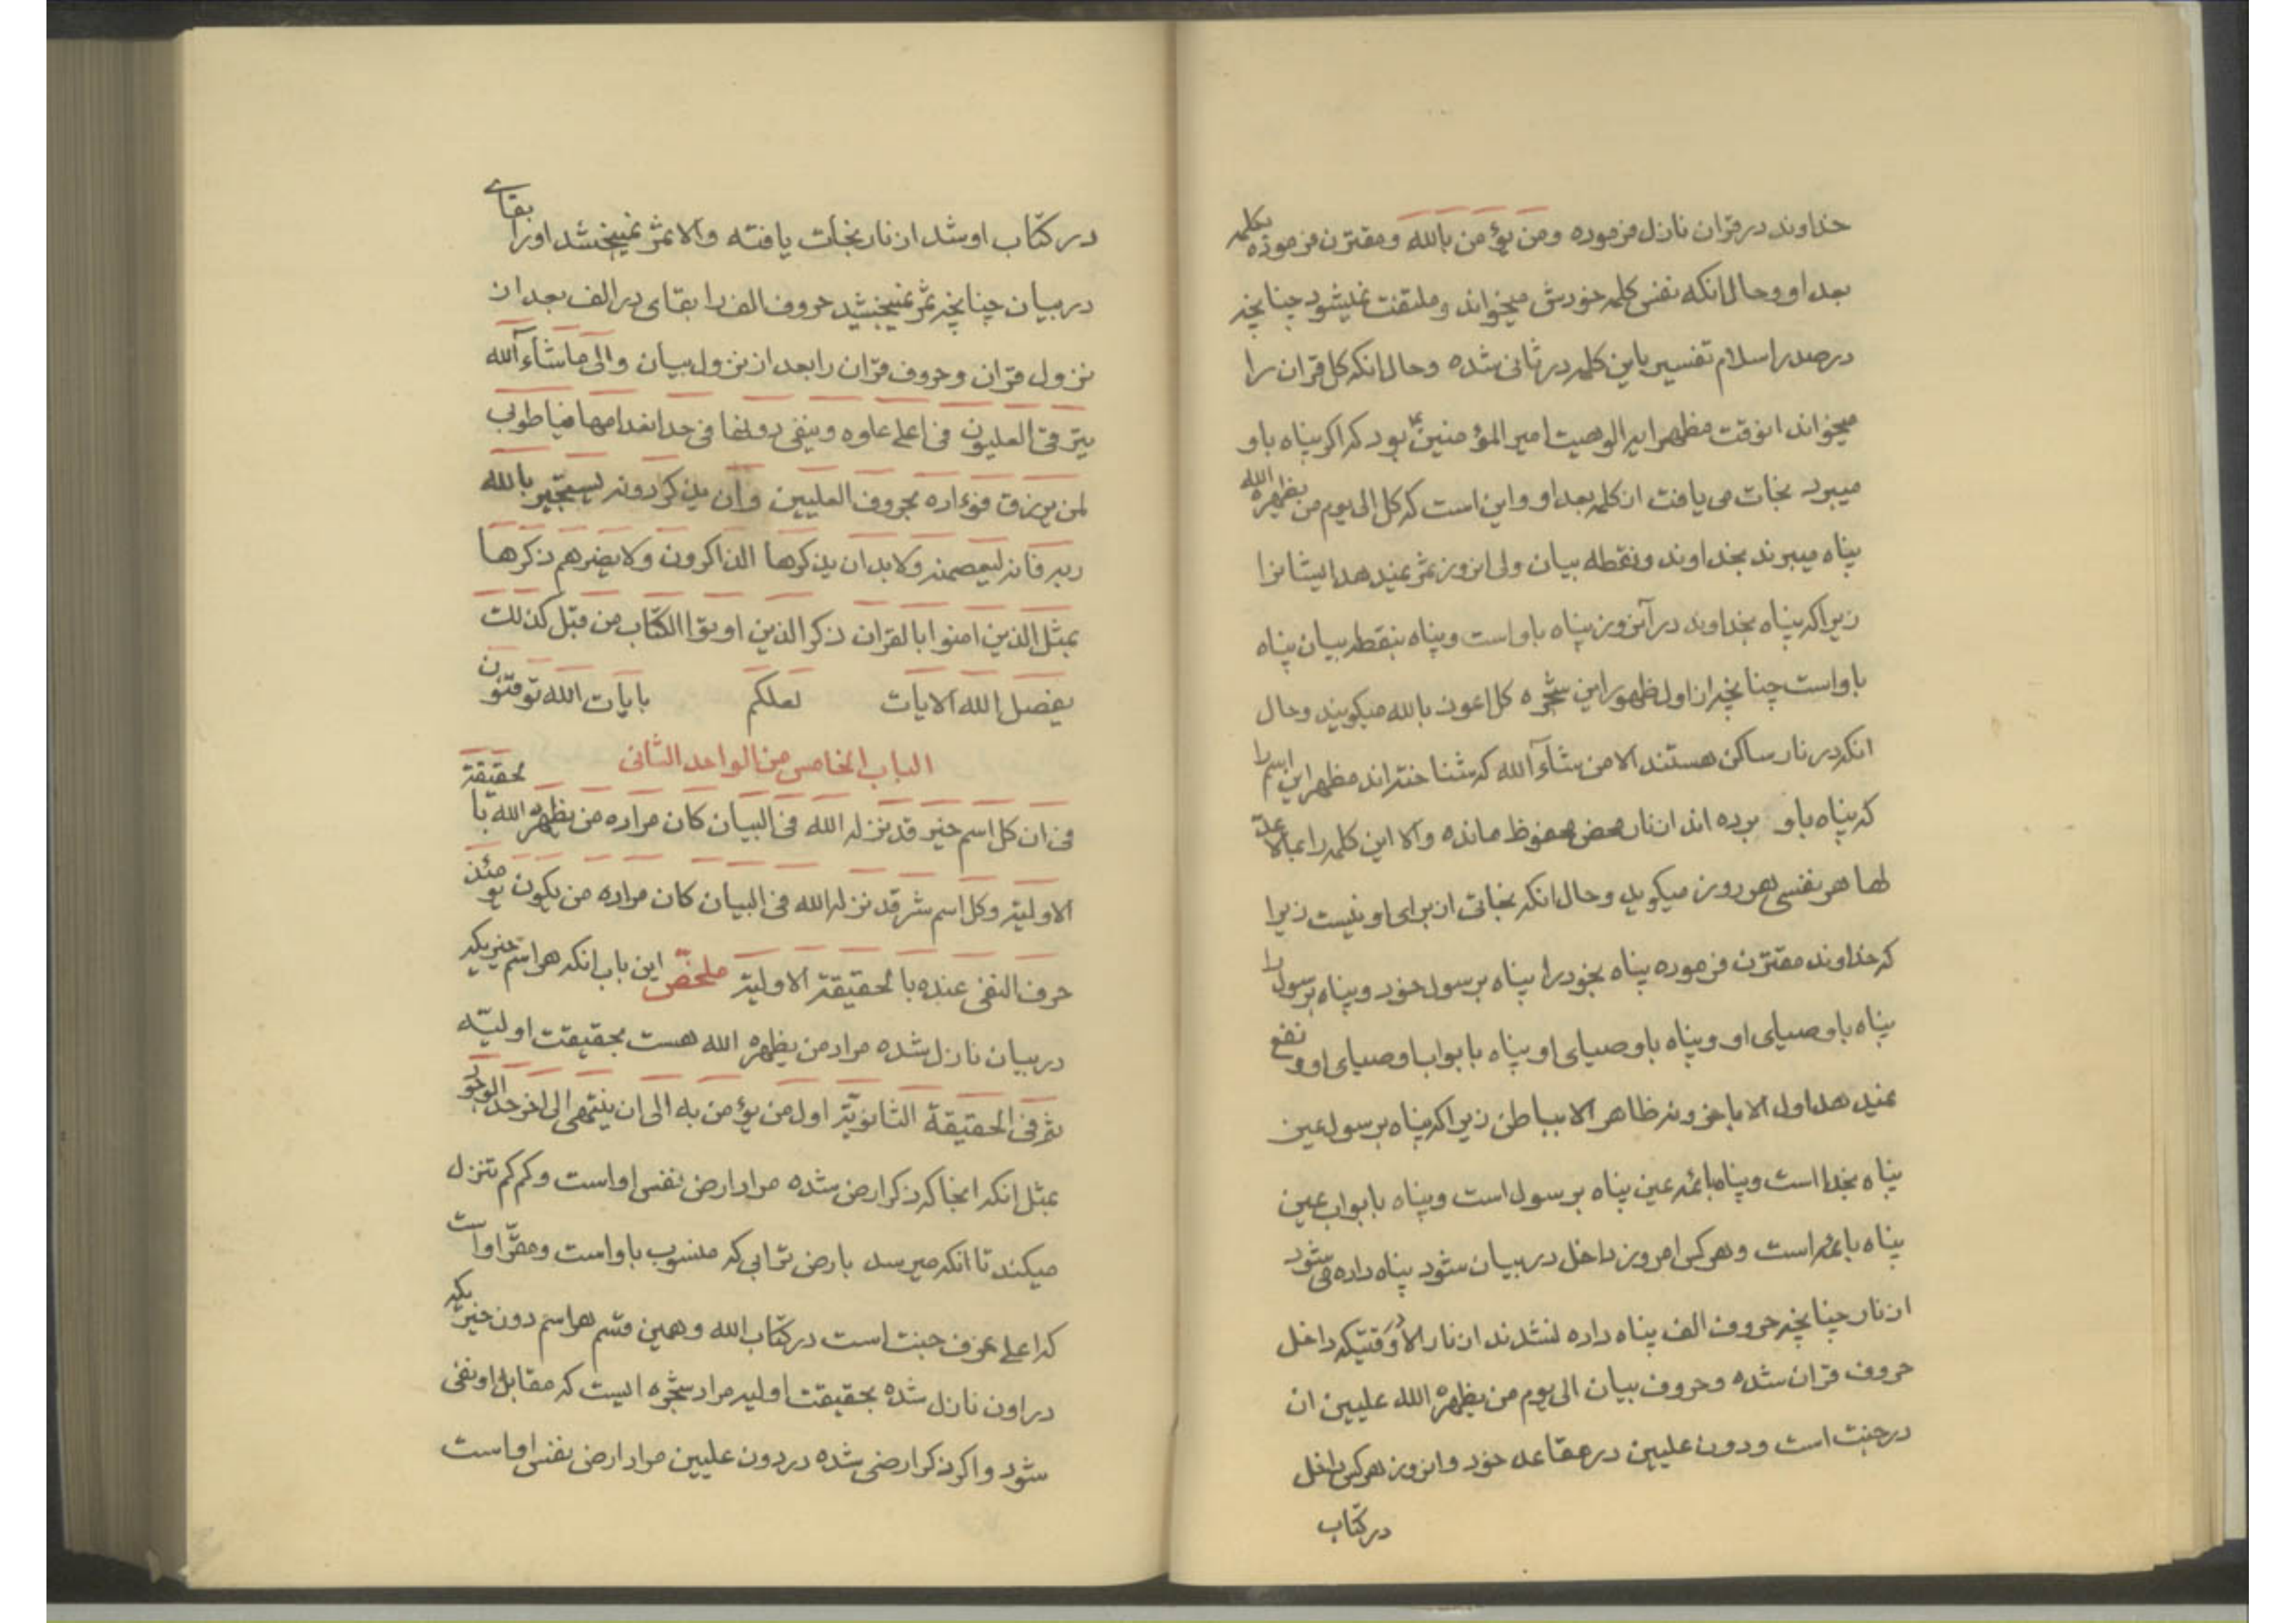 خداوند در قران نازل فرموده ومن یؤمن بالله ومقترن فرموده بکلمه
بعد او وحال انکه نفس کلمه خودش میخواند وملتفت نمیشود چنانچه
درصدر اسلام تفسیر باین کلمه در ثانی شده وحال انکه کل قران را
میخواند انوقت مظهر ایه الوهیت امیر المؤمنین ع بود که اکر پناه باو
میبرد نجات می یافت از کلمه بعد او واین است که کل الی یوم من یظهره الله
پناه میبرند بخداوند ونقطه بیان ولی انروز ثمر نمیدهد ایشانرا
زیرا که پناه بخداوند در آنروز پناه باو است وپناه بنقطه بیان پناه
باو است چنانچه از اول ظهور این شجره کل اعوذ بالله میکویند وحال
انکه در نار ساکن هستند الا من شآء الله که شناخته اند مظهر این اسم را
که پناه باو برده اند از نار محض محفوظ مانده والا این کلمه را بمالا عد
لها هر نفسی هر روز میکوید وحال انکه نجاتی از برای او نیست زیرا
که خداوند مقترن فرموده پناه بخود را پناه برسول خود وپناه برسول را
پناه باوصیای او وپناه باوصیای او پناه بابواب اوصیای او ونفع
نمیدهد اول الا باخر ونه ظاهر الا بباطن زیرا که پناه برسول عین
پناه بخدا است وپناه بائمه عین پناه برسول است وپناه بابواب عین
پناه بائمه است وهر کس امروز داخل در بیان شود پناه داده می شود
از نار چنانچه حروف الف پناه داده نشدند از نار الا وقتیکه داخل
حروف قران شده وحروف بیان الی یوم من یظهره الله علیین ان
در جنت است ودون علیین در مقاعد خود وانروز هر کس داخل
در کتاب
در کتاب او شد از نار نجات یافته والا ثمر نمیبخشد اورا بقای
در بیان چنانچه ثمر نمیبخشید حروف الف را بقای در الف بعد از
نزول قران وحروف قران را بعد از نزول بیان والی ماشآء الله
یترقی العلیون فی اعلی علوه وینفی دونها فی حد انعدامها فیا طوبی
لمن یرزق فؤاده بحروف العلیین وان یذکر دونه لیستجیر بالله
ربه فانه لیعصمنه ولابد ان یذکرها الذاکرون ولایضرهم ذکرها
بمثل الذین امنوا بالقران ذکر الذین اوتوا الکتاب من قبل کذلك
یفصل الله الایات لعلکم بایات الله توقنون
الباب الخامس من الواحد الثانی
فی ان کل اسم خیر قد نزله الله فی البیان کان مراده من یظهره الله بالحقیقة
الاولیة وکل اسم شر قد نزله الله فی البیان کان مراده من یکون یومئذ
حرف النفی عنده بالحقیقة الاولیة ملخص این باب انکه هر اسم خیریکه
در بیان نازل شده مراد من یظهره الله هست بحقیقت اولیّه
ثم فی الحقیقة الثانویة اول من یؤمن به الی ان ینتهی الی اخر حد الوجود
بمثل انکه انجا که ذکر ارض شده مراد ارض نفس او است وکم کم تنزل
میکند تا انکه میرسد بارض ترابی که منسوب باو است ومقر او است
که اعلی غرف جنت است در کتاب الله وهمین قسم هر اسم دون خیریکه
در اون نازل شده بحقیقت اولیه مراد شجره ایست که مقابل او نفی
شود واکر ذکر ارضی شده در دون علیین مراد ارض نفس او است